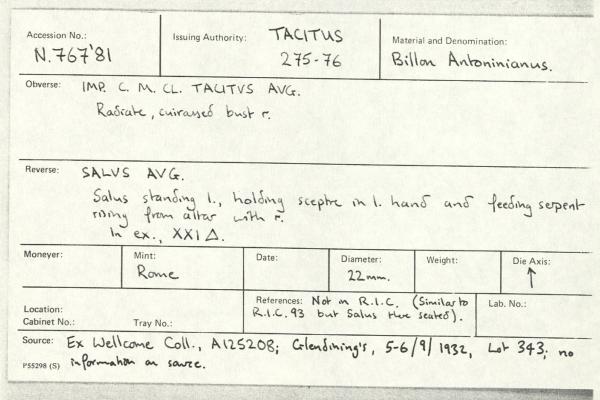 Accession No.: N.767'81
Issuing Authority: TACITUS 275-76
Material and Denomination: Billon Antoninianus.
Obverse: IMP. C. M. CL. TACITVS AVG.
Radiate, cuirassed bust r.
Reverse: SALVS AVG.
Salus standing l., holding sceptre in l. hand and feeding serpent
rising from altar with r.
In ex., XXI Δ.
Moneyer:
Mint: Rome
Date:
Diameter: 22mm.
Weight:
Die Axis: ↑
Location:
Cabinet No.: Tray No.:
References: Not in R.I.C. (Similar to
R.I.C. 93 but Salus there seated).
Lab. No.:
Source: Ex Wellcome Coll., A125208; Glendining's, 5-6/9/1932, Lot 343; no
P55298 (S) information on source.